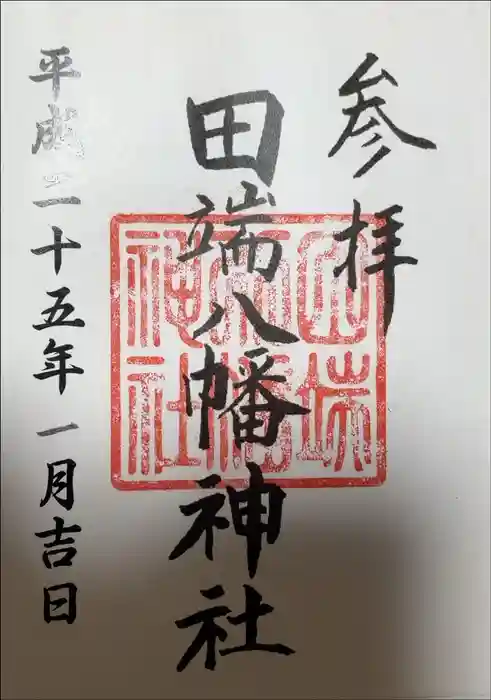 参拝
田端八幡神社
田端八幡神社
平成二十五年一月吉日